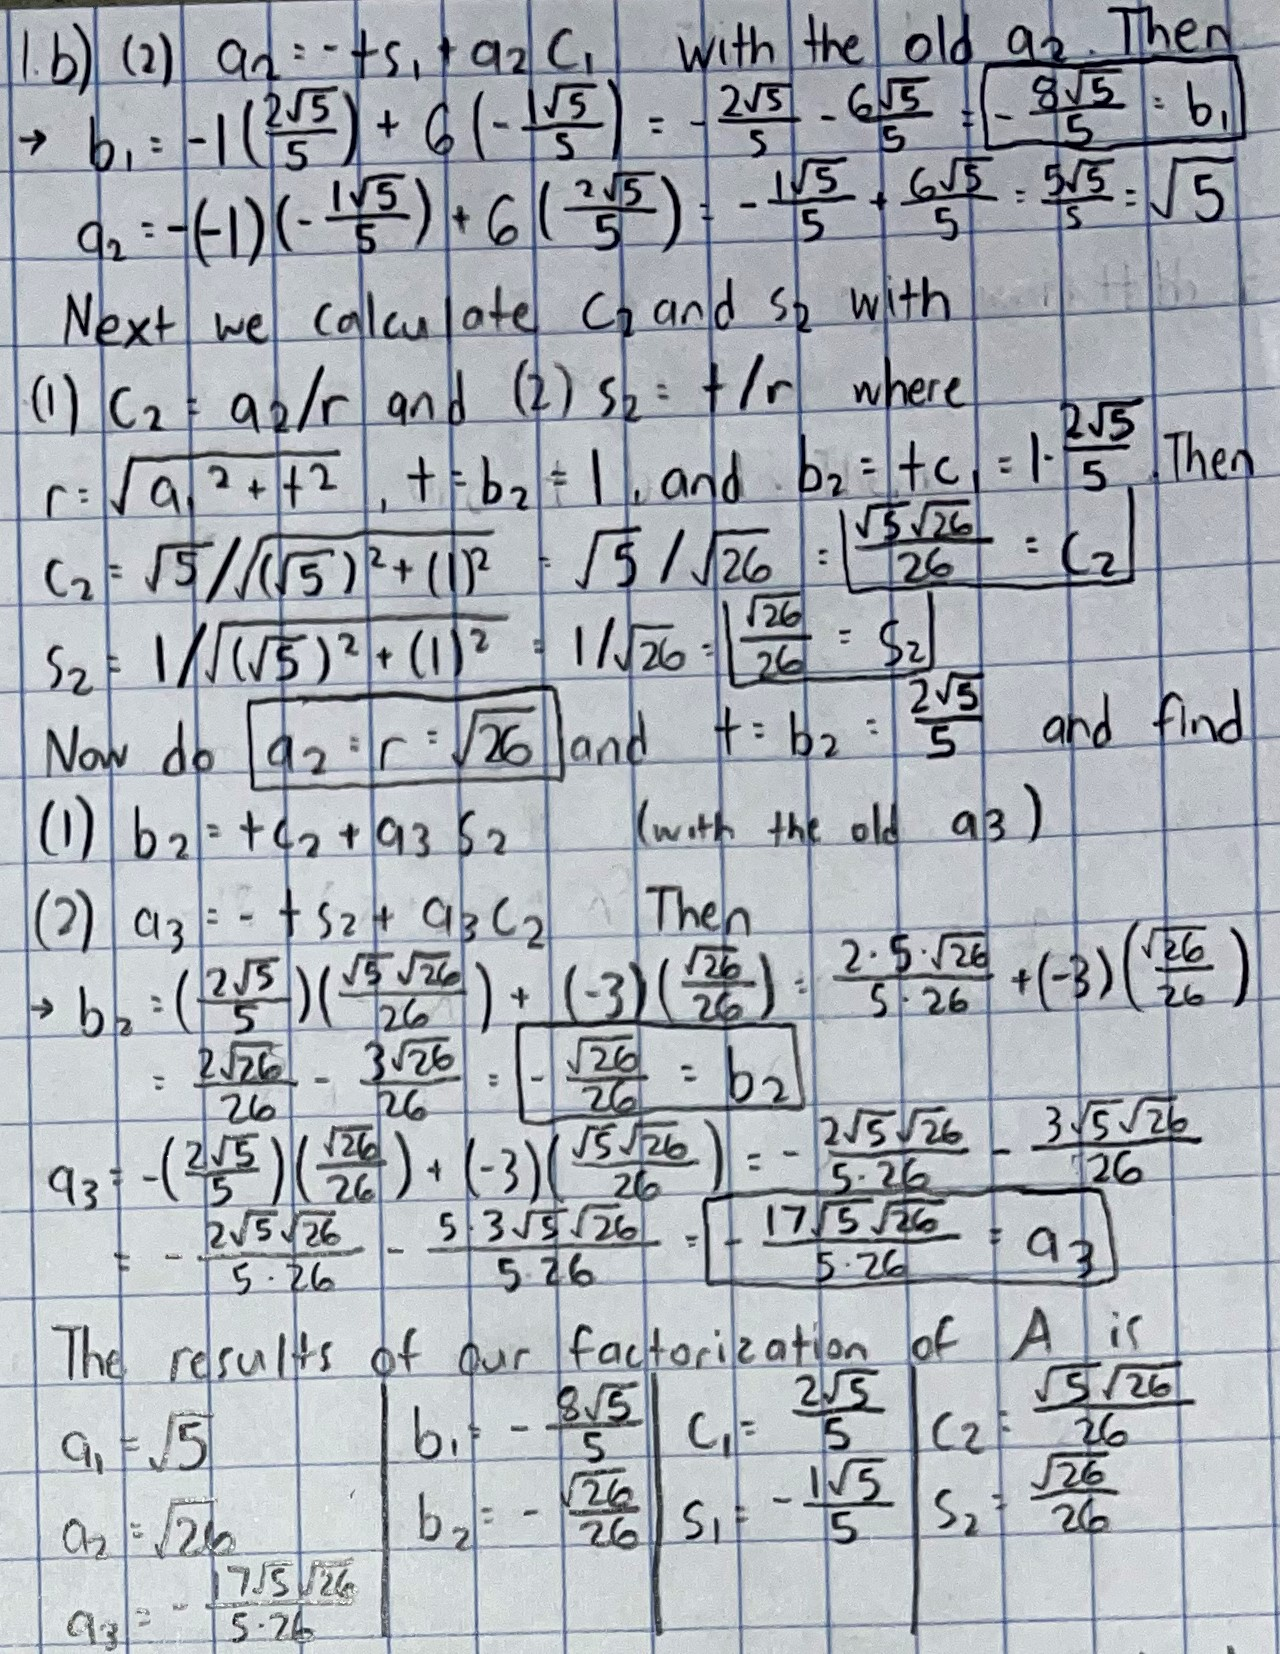 1.b) (2) a₂ = -ts₁ + a₂c₁ with the old a₂. Then
→ b₁ = -1(2√5/5) + 6(-1√5/5) = -2√5/5 - 6√5/5 = -8√5/5 = b₁
a₂ = -(-1)(-1√5/5) + 6(2√5/5) = -1√5/5 + 6√5/5 = 5√5/5 = √5
Next we calculate c₂ and s₂ with
(1) c₂ = a₂/r and (2) s₂ = t/r where
r = √(a₁² + t²), t = b₂ = 1, and b₂ = tc₁ = 1·2√5/5. Then
c₂ = √5/√((√5)² + (1)²) = √5/√26 = √5√26/26 = c₂
s₂ = 1/√((√5)² + (1)²) = 1/√26 = √26/26 = s₂
Now do a₂ = r = √26 and t = b₂ = 2√5/5 and find
(1) b₂ = tc₂ + a₃s₂ (with the old a₃)
(2) a₃ = -ts₂ + a₃c₂ Then
→ b₂ = (2√5/5)(√5√26/26) + (-3)(√26/26) = 2·5·√26/5·26 + (-3)(√26/26)
= 2√26/26 - 3√26/26 = -√26/26 = b₂
a₃ = -(2√5/5)(√26/26) + (-3)(√5√26/26) = -2√5√26/5·26 - 3√5√26/26
= -2√5√26/5·26 - 5·3√5√26/5·26 = -17√5√26/5·26 = a₃
The results of our factorization of A is
a₁ = √5 | b₁ = -8√5/5 | c₁ = 2√5/5 | c₂ = √5√26/26
a₂ = √26 | b₂ = -√26/26 | s₁ = -1√5/5 | s₂ = √26/26
a₃ = -17√5√26/5·26